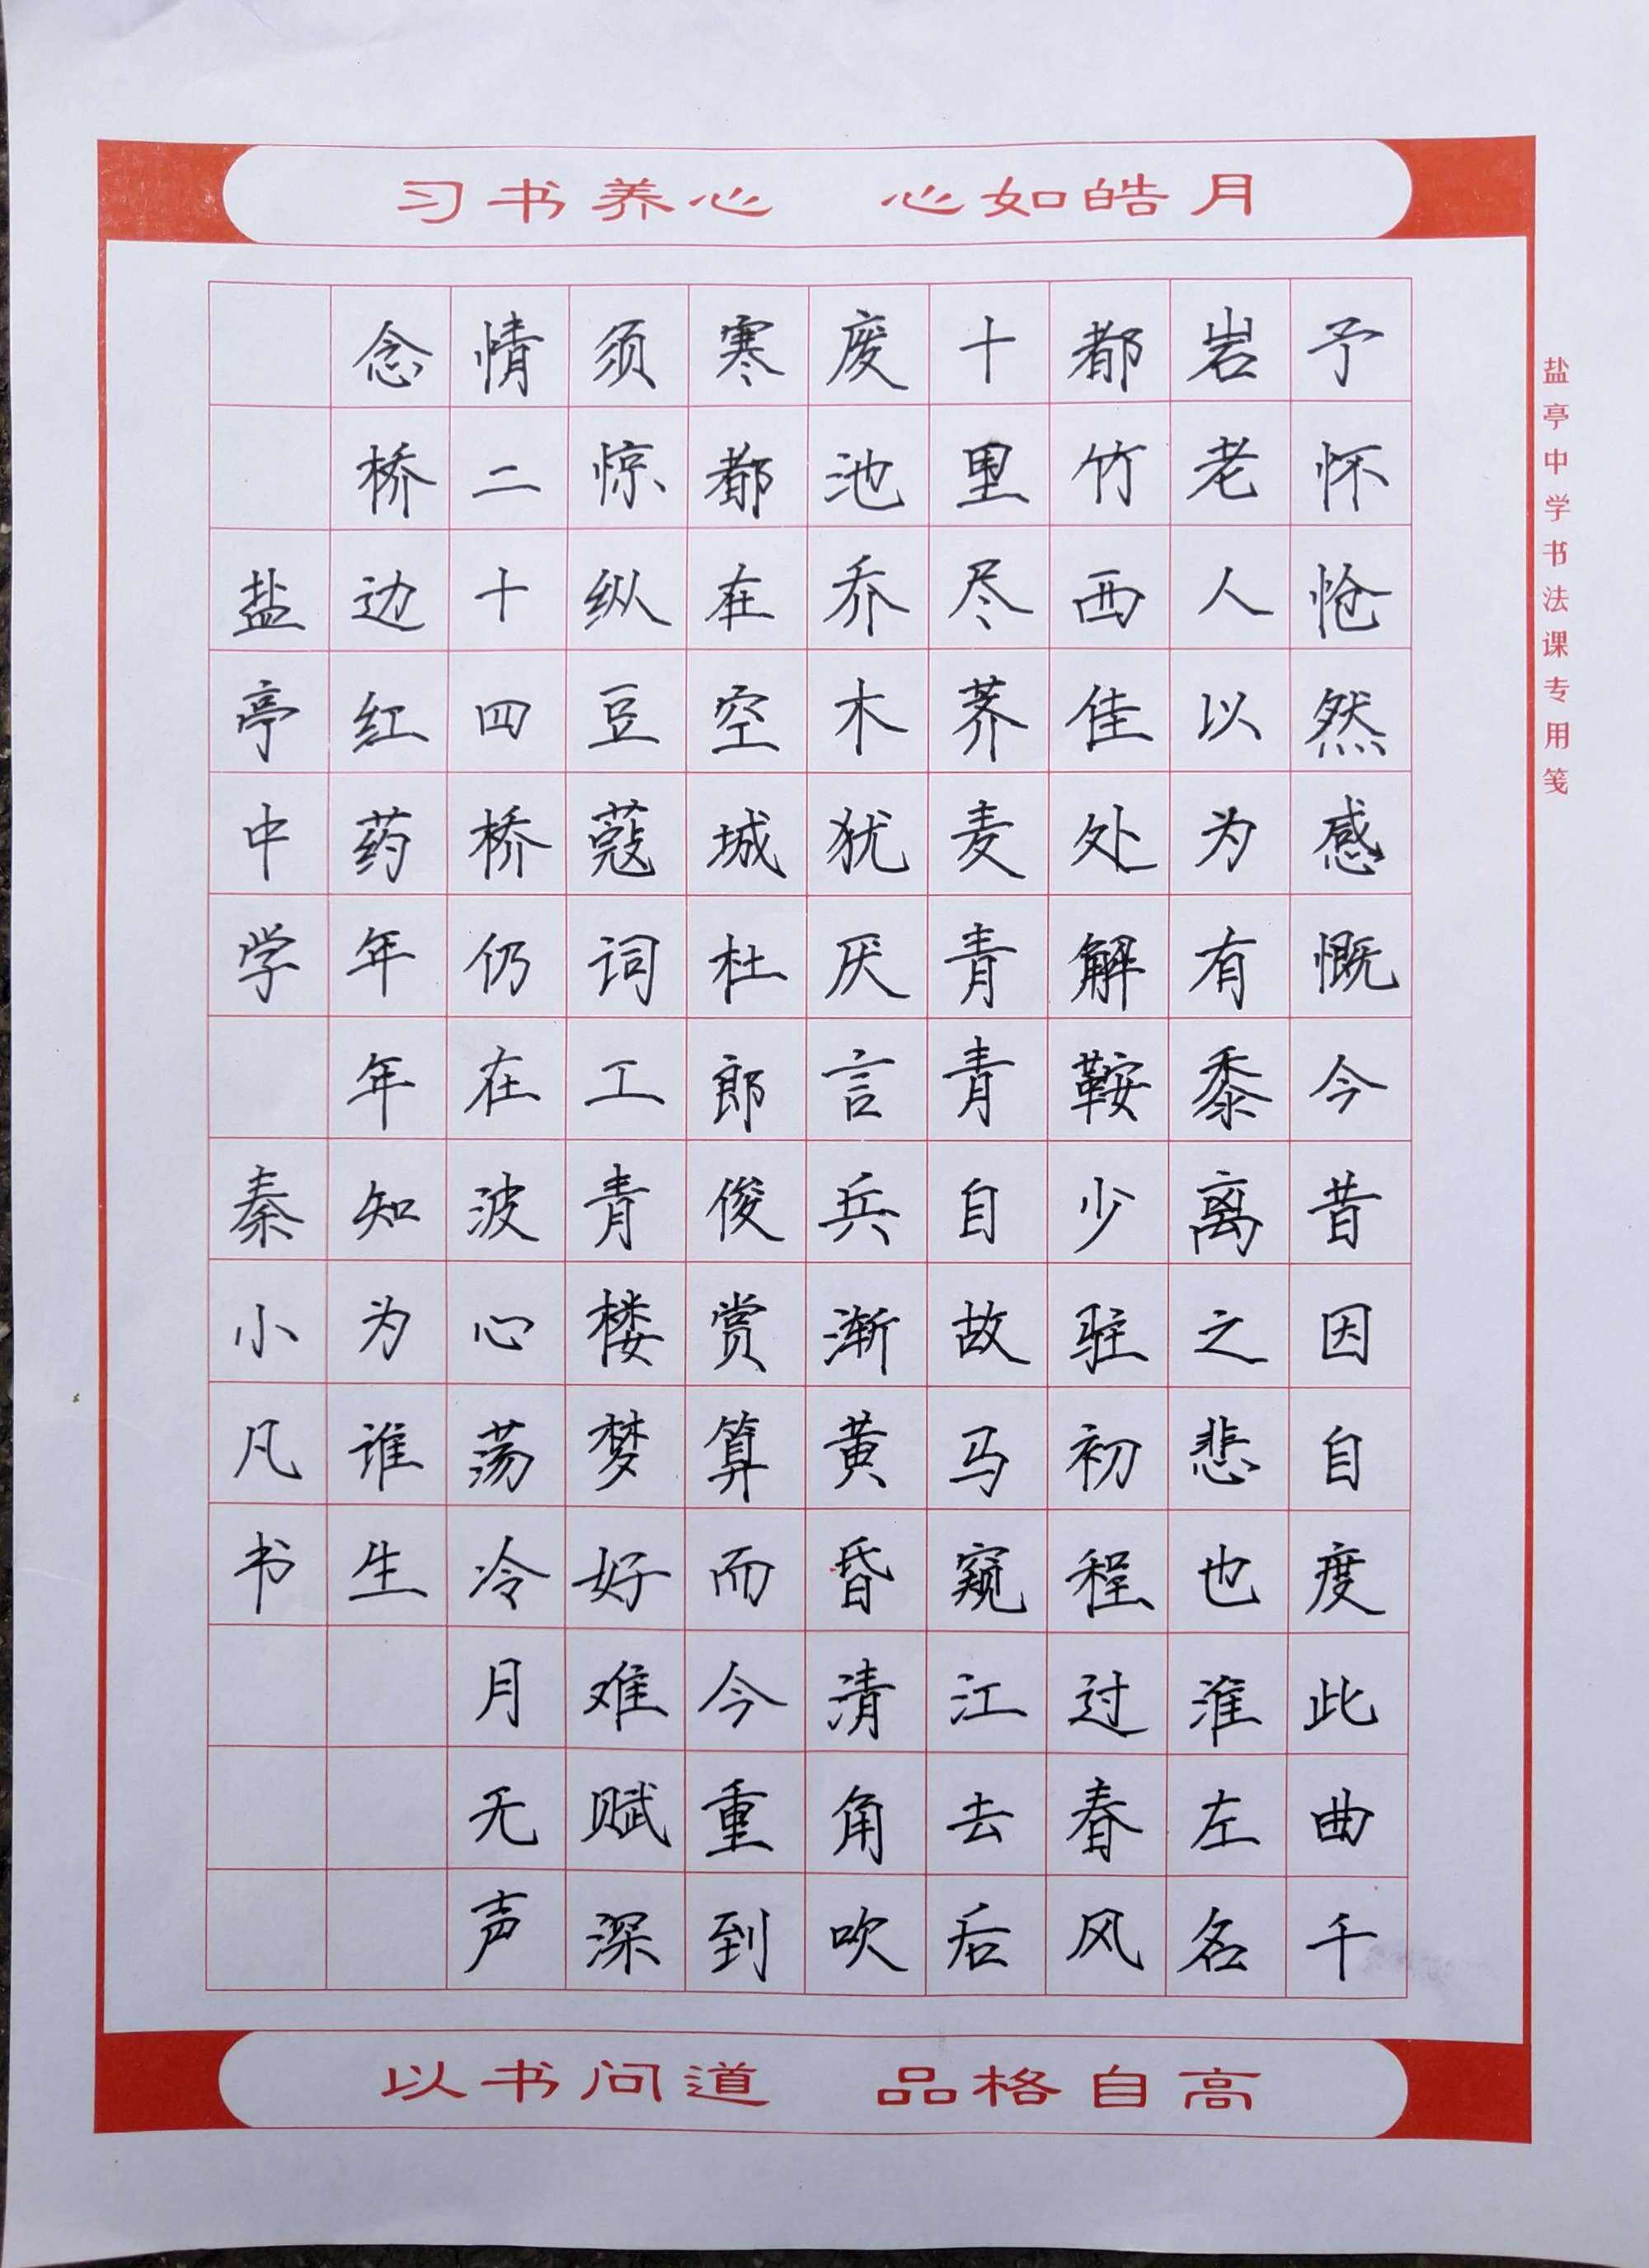 习书养心 心如皓月
盐亭中学书法课专用笺
予怀怆然感慨今昔因自度此曲千
岩老人以为有黍离之悲也淮左名
都竹西佳处解鞍少驻初程过春风
十里尽荞麦青青自故马窥江去后
废池乔木犹厌言兵渐黄昏清角吹
寒都在空城杜郎俊赏算而今重到
须惊纵豆蔻词工青楼梦好难赋深
情二十四桥仍在波心荡冷月无声
念桥边红药年年知为谁生
盐亭中学 秦小凡书
以书问道 品格自高